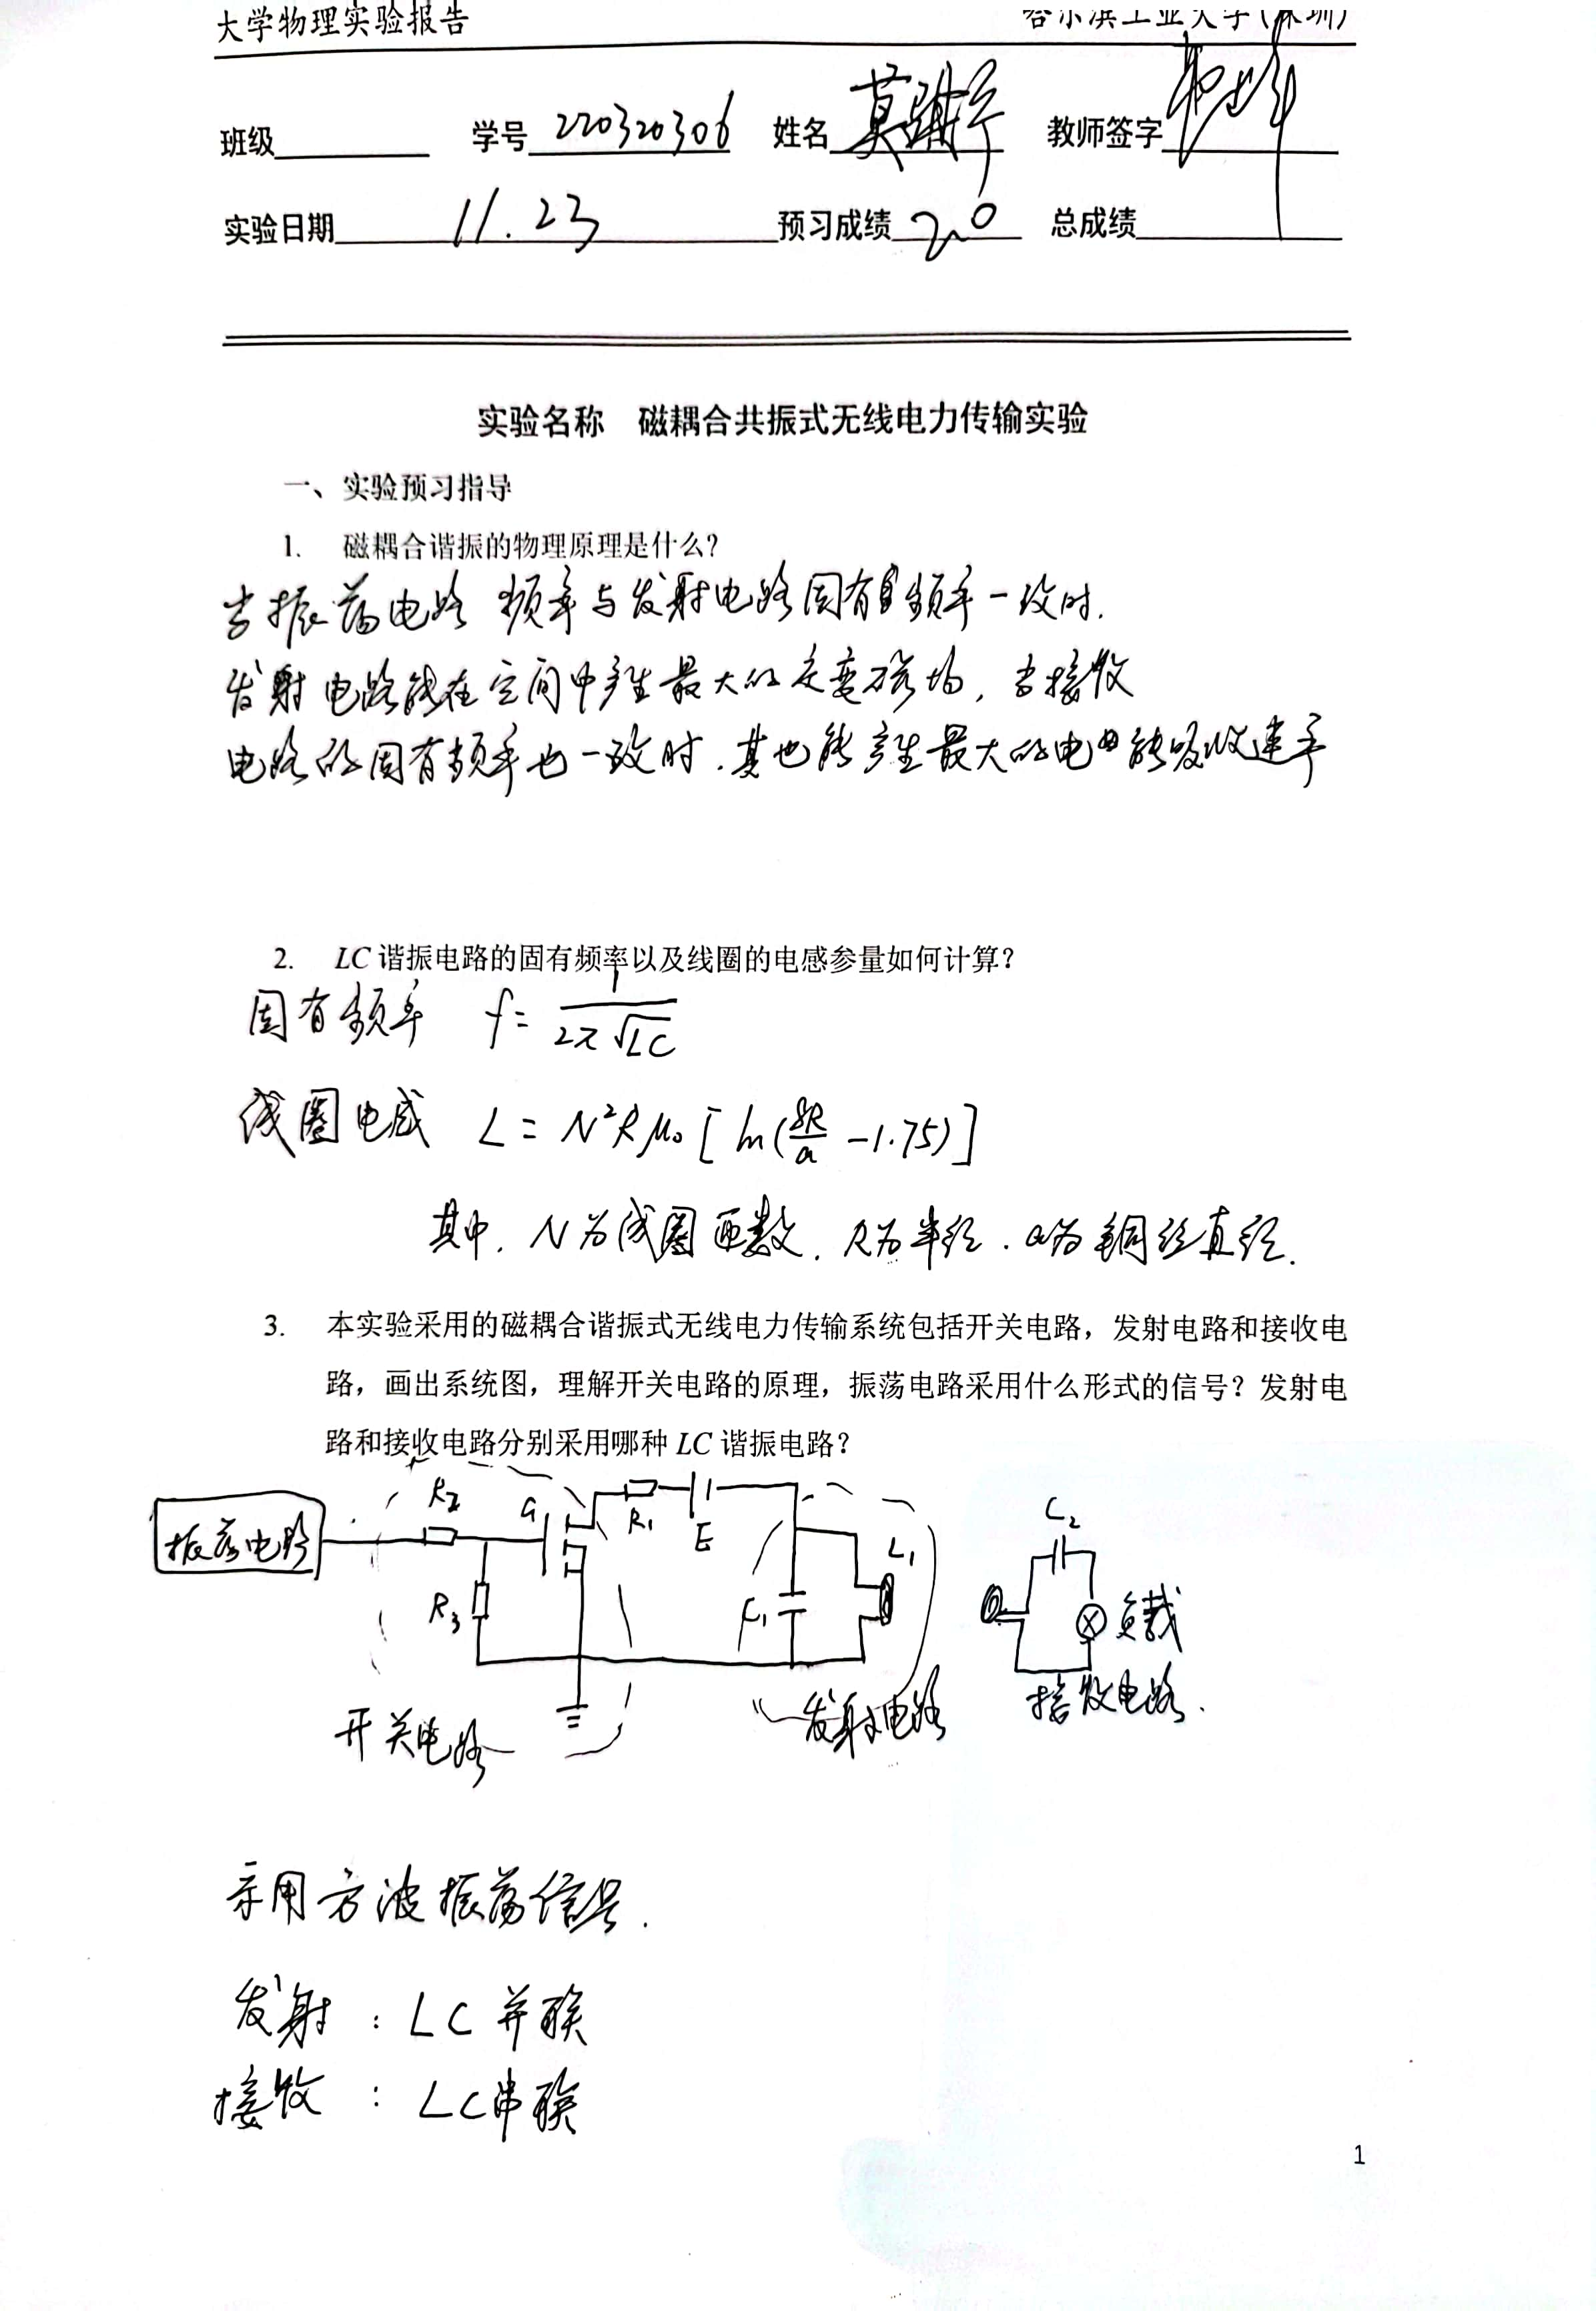 大学物理实验报告 哈尔滨工业大学(深圳)
班级 学号 220320306 姓名 莫 教师签字
实验日期 11.23 预习成绩 2.0 总成绩
实验名称 磁耦合共振式无线电力传输实验
一、实验预习指导
1. 磁耦合谐振的物理原理是什么？
当振荡电路 频率与发射电路固有频率一致时.
发射电路能在空间中产生最大的交变磁场，当接收
电路的固有频率也一致时.其也能产生最大的电能吸收速率
2. LC 谐振电路的固有频率以及线圈的电感参量如何计算？
固有频率 f= 1/(2π√LC)
线圈电感 L = N²Rμ₀[ln(8R/a −1.75)]
其中. N为线圈匝数. R为半径. a为铜丝直径.
3. 本实验采用的磁耦合谐振式无线电力传输系统包括开关电路，发射电路和接收电
路，画出系统图，理解开关电路的原理，振荡电路采用什么形式的信号？发射电
路和接收电路分别采用哪种 LC 谐振电路？
振荡电路 R₂ G R₁ E L₁ C₂
R₃ C₁ 负载
开关电路 发射电路 接收电路.
采用方波振荡信号.
发射：LC并联
接收：LC串联
1